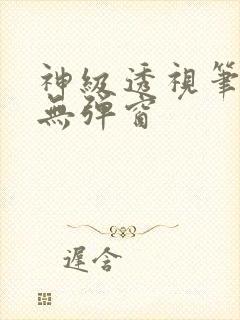 神級透視筆
無彈窗
遲含